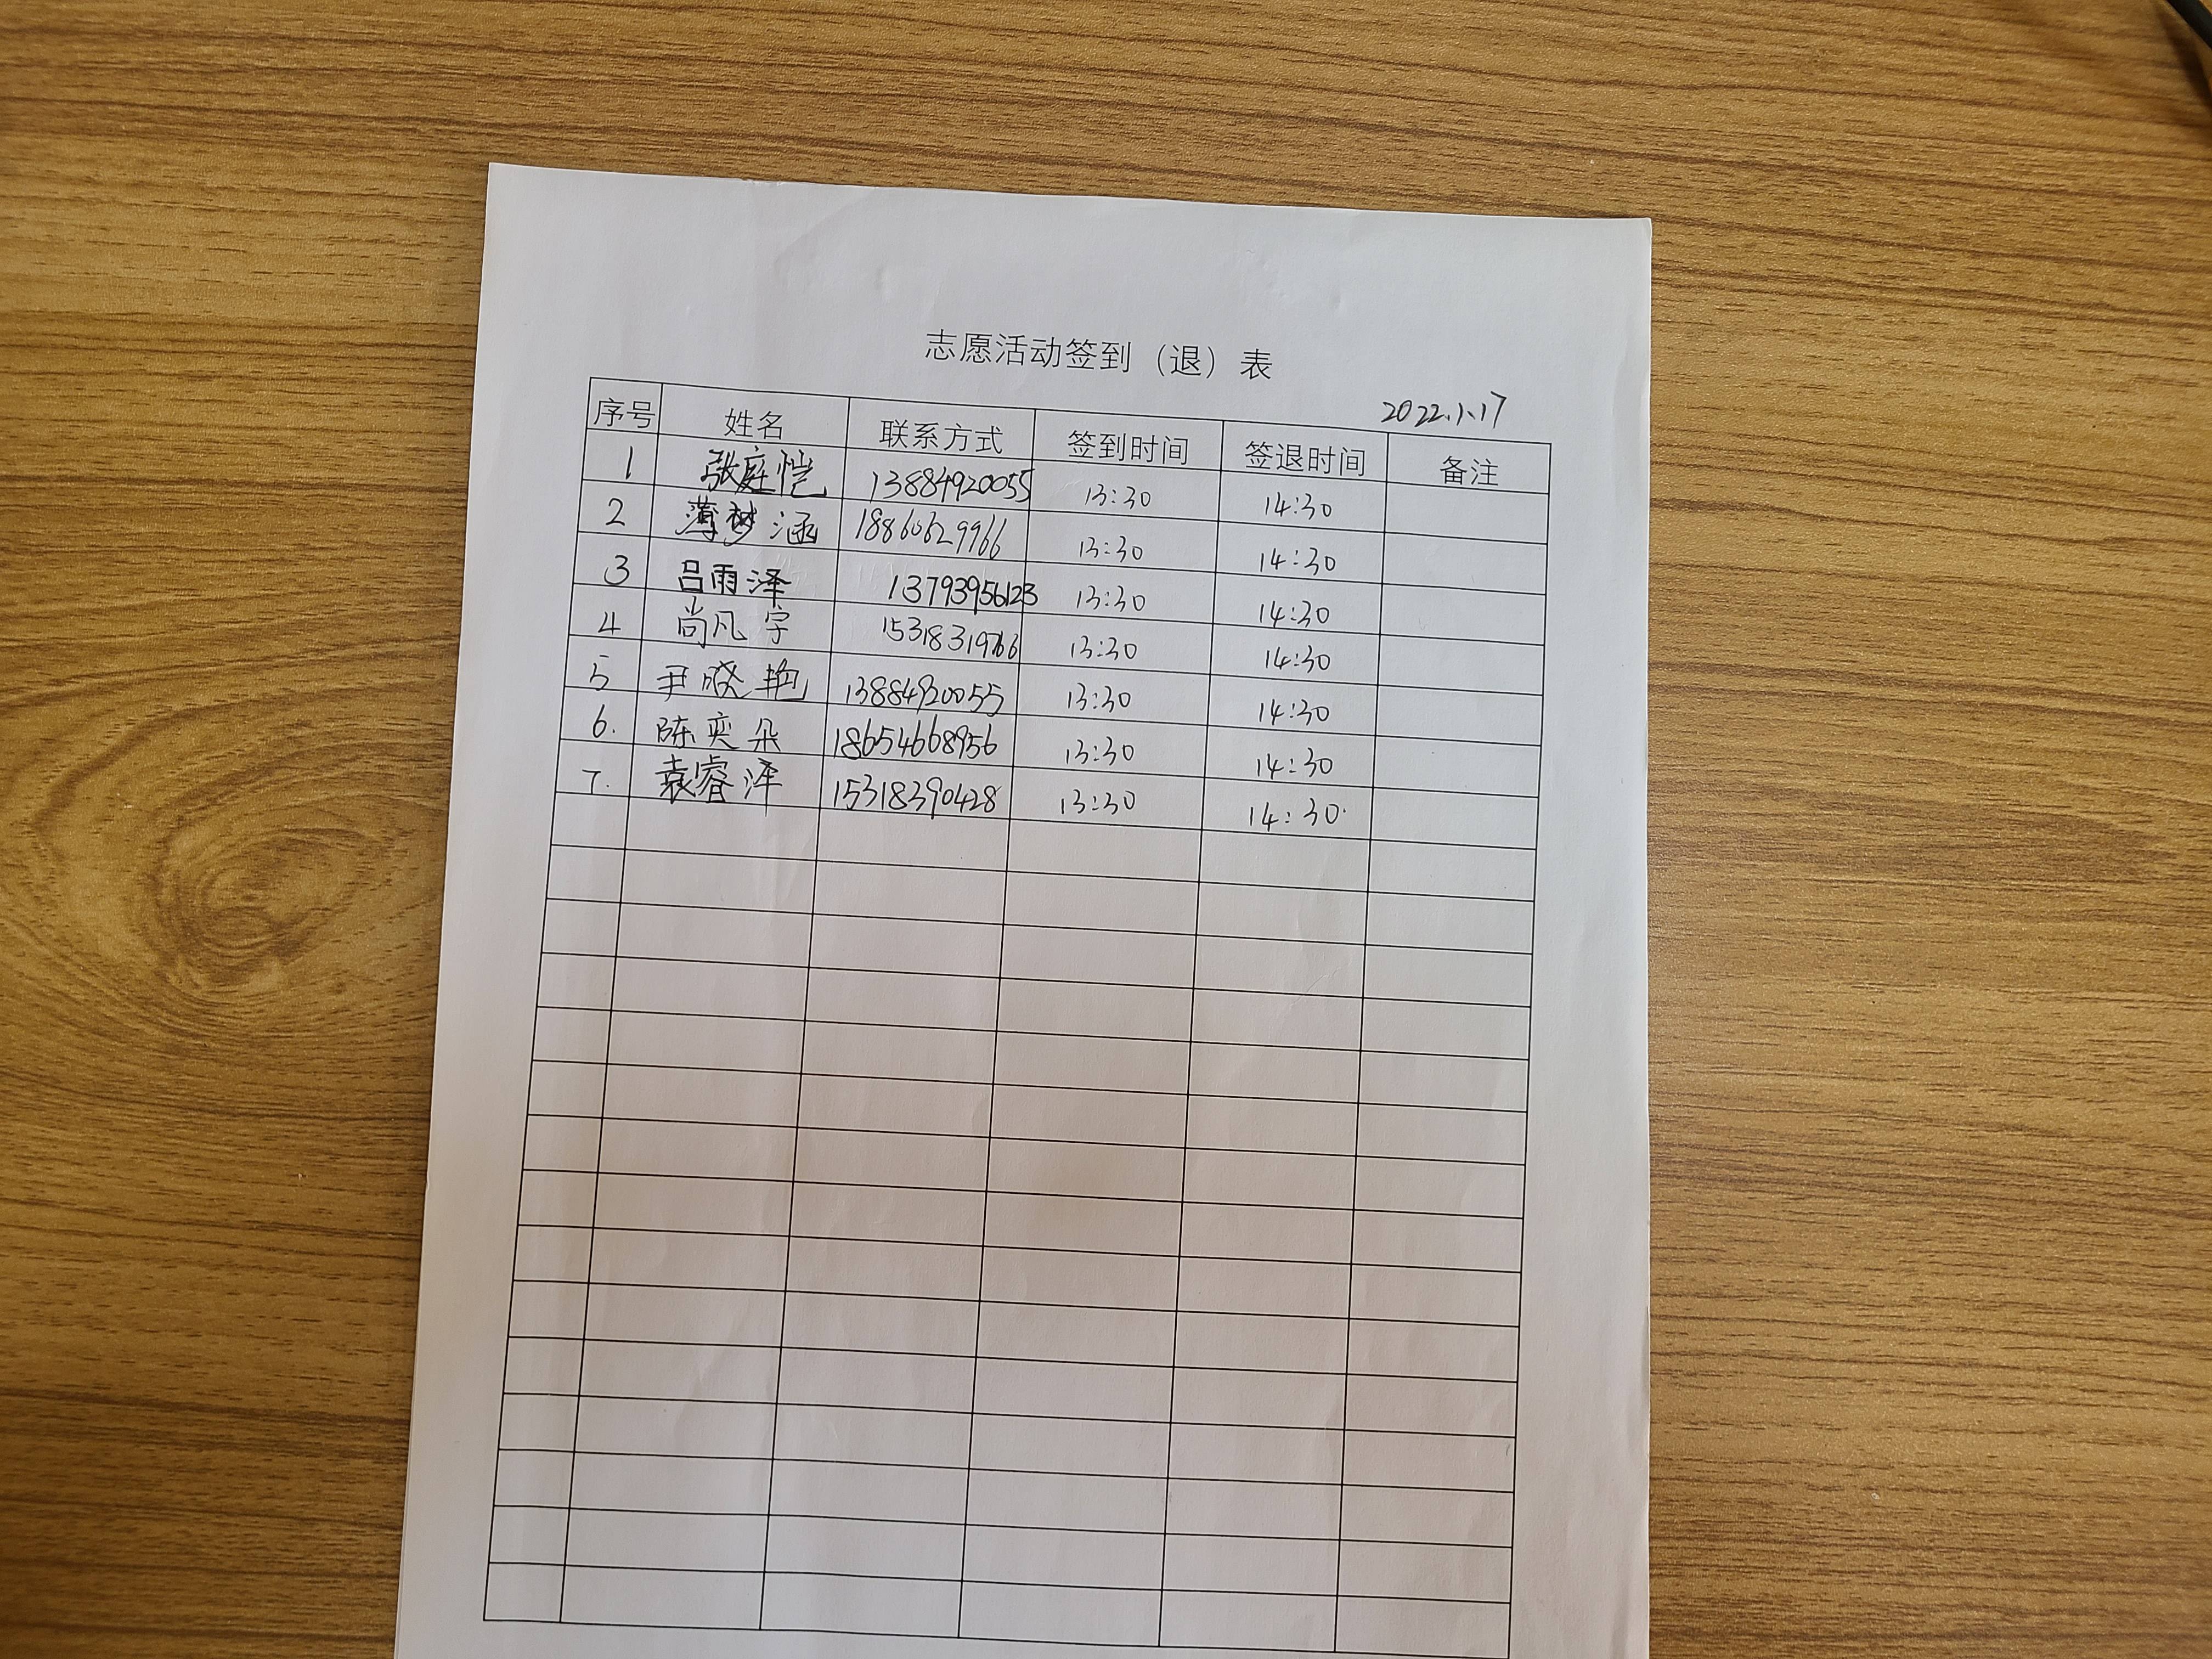 志愿活动签到（退）表
2022.1.17
序号 姓名 联系方式 签到时间 签退时间 备注
1 张庭恺 13884920055 13:30 14:30
2 薄梦涵 18860629966 13:30 14:30
3 吕雨泽 13793956123 13:30 14:30
4 尚凡宇 15318319766 13:30 14:30
5 尹晓艳 13884920055 13:30 14:30
6. 陈奕朵 18654668956 13:30 14:30
7. 袁睿泽 15318390428 13:30 14:30.